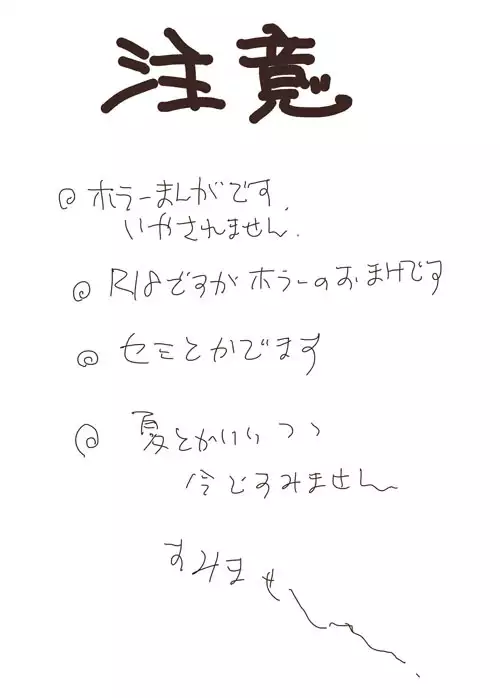 注意
◎ ホラーまんがです、
いやされません.
◎ R18ですがホラーのおまけです
◎ セミとかでます
◎ 夏とかいいつつ
今ですみません
すみません